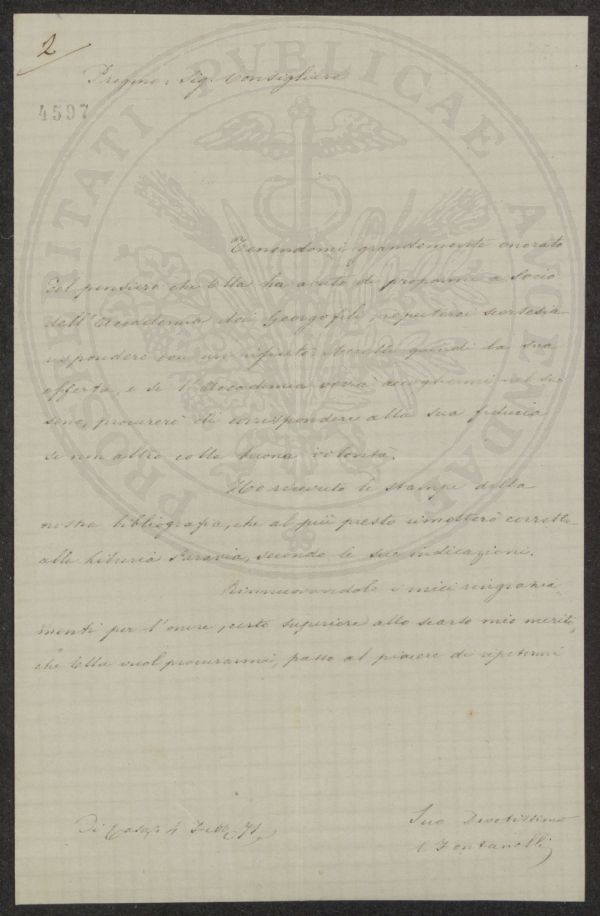 2
Pregmo. Sig. Consigliere
4597
PROSPERITATI PVBLICAE AVGENDAE
Tenendomi grandemente onorato
del pensiero che Ella ha avuto di propormi a Socio
dell'Accademia dei Georgofili, reputerei scortesia
rispondere con un rifiuto. Accetto quindi la sua
offerta, e se l'Accademia vorrà accogliermi nel suo
seno, procurerò di corrispondere alla sua fiducia
se non altro colla buona volontà.
Ho ricevuto le stampe della
nostra bibliografia, che al più presto rimetterò corrette
alla libreria Paravia, secondo le sue indicazioni.
Rinnuovandole i miei ringrazia
menti per l'onore, certo superiore allo scarso mio merito,
che Ella vuol procurarmi, passo al piacere di ripetermi
Di Casa, 4 71
Suo Devotissimo
Fontanelli